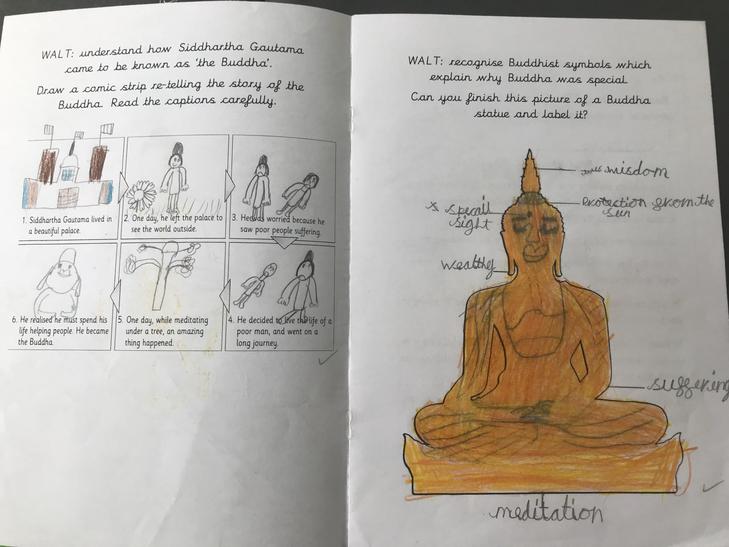 WALT: understand how Siddhartha Gautama
came to be known as 'the Buddha'.
Draw a comic strip re-telling the story of the
Buddha. Read the captions carefully.
1. Siddhartha Gautama lived in
a beautiful palace.
2. One day, he left the palace to
see the world outside.
3. He was worried because he
saw poor people suffering.
6. He realised he must spend his
life helping people. He became
the Buddha.
5. One day, while meditating
under a tree, an amazing
thing happened.
4. He decided to live the life of a
poor man, and went on a
long journey.
WALT: recognise Buddhist symbols which
explain why Buddha was special.
Can you finish this picture of a Buddha
statue and label it?
wisdom
Protection from the
sun
special
sight
wealthy
suffering
meditation